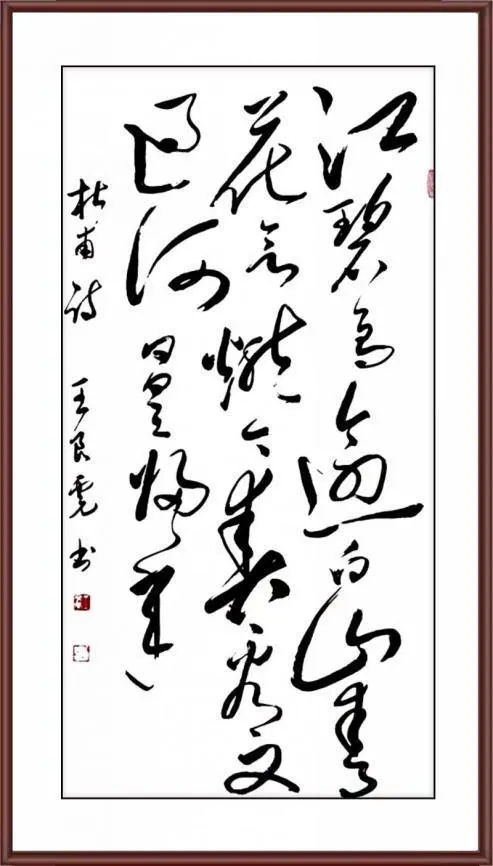 江碧鸟逾白山青
花欲燃今春看又
过何日是归年
杜甫诗 王良书